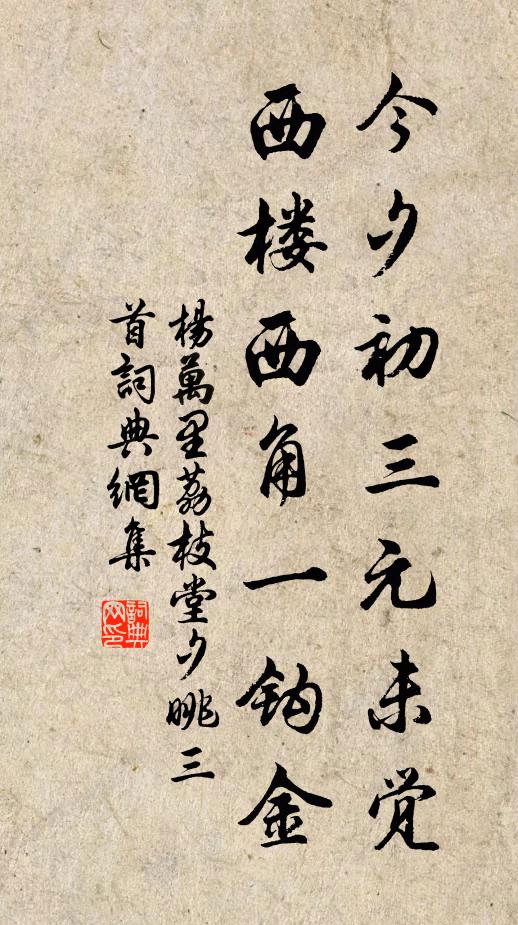 今夕初三元未觉
西楼西角一钩金
楊萬里荔枝堂夕眺三
首詞典網集
詞典网印